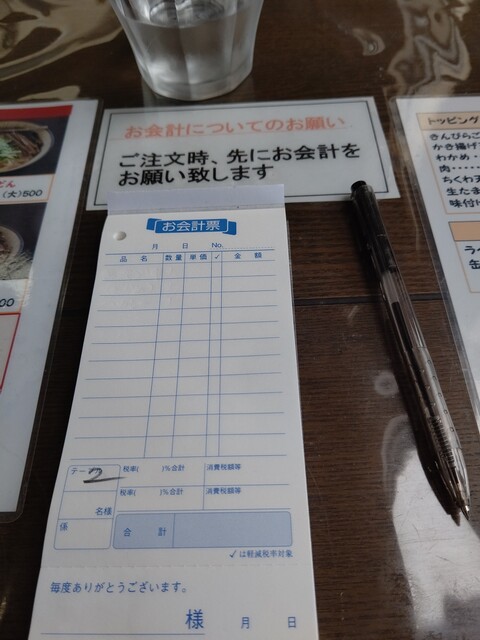 お会計についてのお願い
ご注文時、先にお会計を
お願い致します
(大)500
00
トッピング
きんぴらご
かき揚げ
わかめ・
肉・・・・
ちくわ天
生たま
味付け
ラー
缶
お会計票
月 日 No.
品 名 数量 単価 ✓ 金 額
テーブル 2 税率( )%合計 消費税額等
税率( )%合計 消費税額等
名様
係
合 計
✓は軽減税率対象
毎度ありがとうございます。
様 月 日